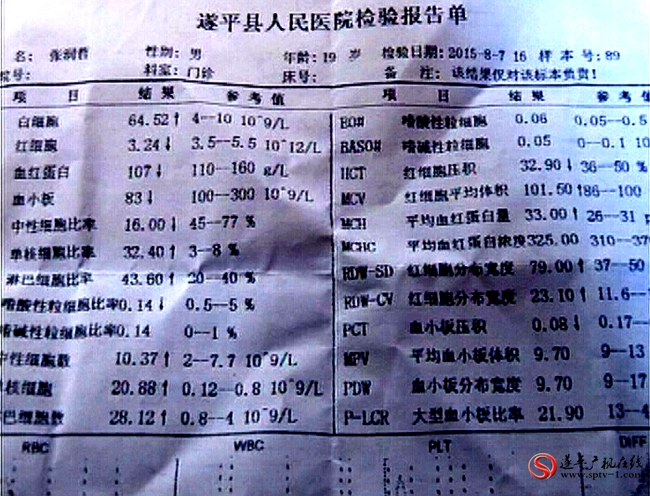 遂平县人民医院检验报告单
名: 张润哲 性别: 男 年龄: 19 岁 检验日期: 2015-8-7 16 样本号: 89
号: 科室: 门诊 床号: 备 注: 该结果仅对该标本负责!
项 目 结果 参考值 项 目 结果 参考值
白细胞 64.52↑ 4--10 10^9/L EO# 嗜酸性粒细胞 0.06 0.05--0.5
红细胞 3.24↓ 3.5--5.5 10^12/L BASO# 嗜碱性粒细胞 0.05 0--0.1 10
血红蛋白 107↓ 110--160 g/L HCT 红细胞压积 32.90↓ 36--50 %
血小板 83↓ 100--300 10^9/L MCV 红细胞平均体积 101.50↑ 86--100
中性细胞比率 16.00↓ 45--77 % MCH 平均血红蛋白量 33.00↑ 26--31 p
单核细胞比率 32.40↑ 3--8 % MCHC 平均血红蛋白浓度 325.00 310--37
淋巴细胞比率 43.60↑ 20--40 % RDW-SD 红细胞分布宽度 79.00↑ 37--50
嗜酸性粒细胞比率 0.14↓ 0.5--5 % RDW-CV 红细胞分布宽度 23.10↑ 11.6--1
嗜碱性粒细胞比率 0.14 0--1 % PCT 血小板压积 0.08↓ 0.17--0
中性细胞数 10.37↑ 2--7.7 10^9/L MPV 平均血小板体积 9.70 9--13
单核细胞 20.88↑ 0.12--0.8 10^9/L PDW 血小板分布宽度 9.70 9--17
淋巴细胞数 28.12↑ 0.8--4 10^9/L P-LCR 大型血小板比率 21.90 13--4
RBC WBC PLT DIFF
遂平广视在线
www.sptv-1.com